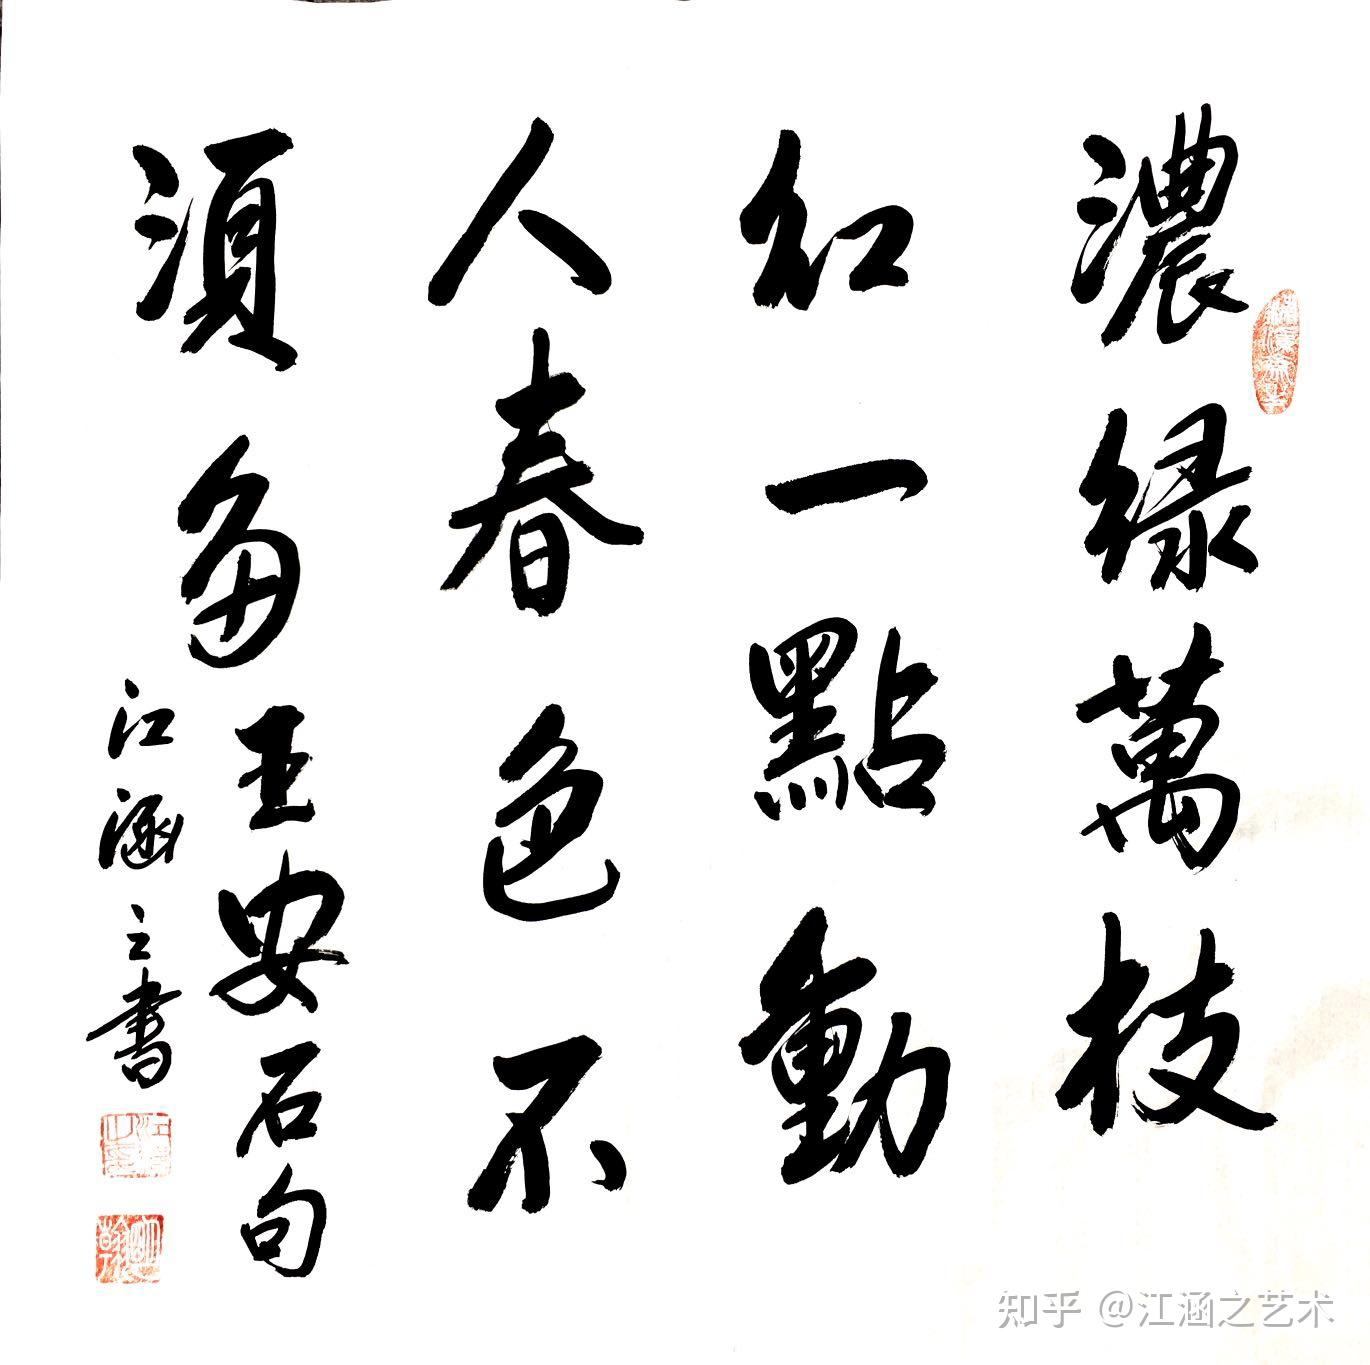 濃緑萬枝
紅一點動
人春色不
須多王安石句
江涵之書
知乎 @江涵之艺术